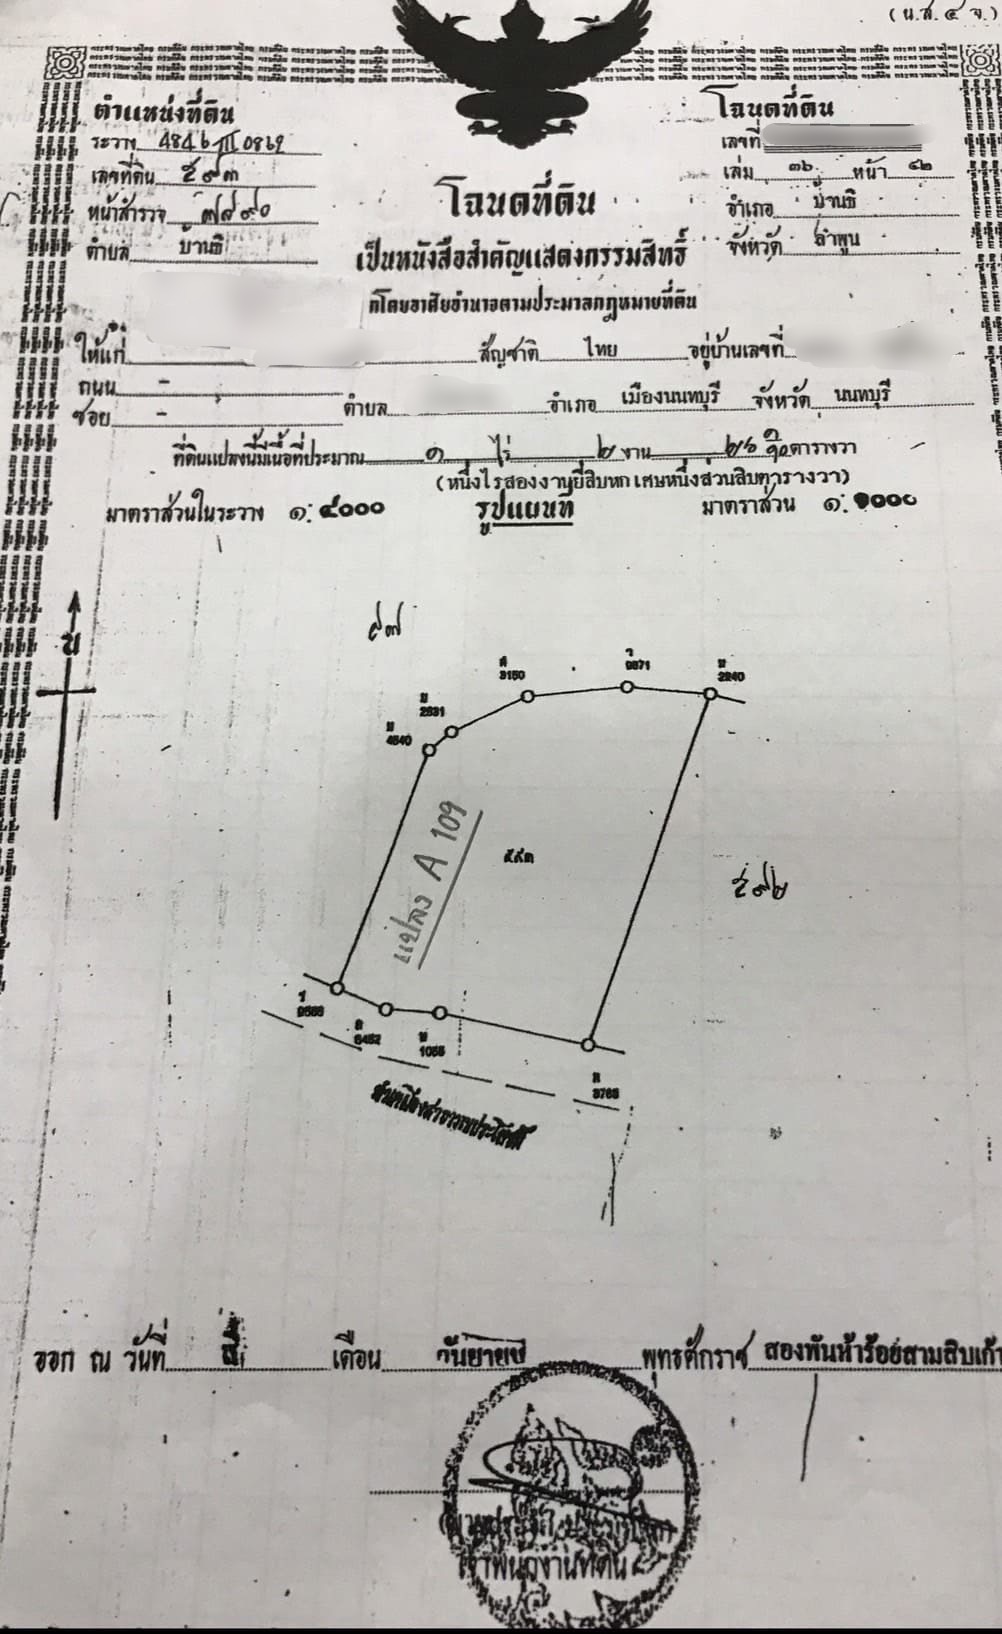 (น.ส.๔ จ.)
ตำแหน่งที่ดิน
ระวาง 4846 III 0862
เลขที่ดิน ๕๙๓
หน้าสำรวจ ๗๙๙๐
ตำบล บ้านธิ
โฉนดที่ดิน
เลขที่
เล่ม ๓๖ หน้า ๔๒
อำเภอ บ้านธิ
จังหวัด ลำพูน
โฉนดที่ดิน
เป็นหนังสือสำคัญแสดงกรรมสิทธิ์
ที่โดยอาศัยอำนาจตามประมวลกฎหมายที่ดิน
ให้แก่ สัญชาติ ไทย อยู่บ้านเลขที่
ถนน -
ซอย - ตำบล อำเภอ เมืองนนทบุรี จังหวัด นนทบุรี
ที่ดินแปลงนี้มีเนื้อที่ประมาณ ๑ ไร่ ๒ งาน ๒๖ ๑/๑๐ ตารางวา
(หนึ่งไร่สองงานยี่สิบหก เศษหนึ่งส่วนสิบตารางวา)
มาตราส่วนในระวาง ๑:๔๐๐๐ รูปแผนที่ มาตราส่วน ๑:๑๐๐๐
น
๙๗
3150
2240
2831
4540
แปลง A 109
๕๙๒
3765
ออก ณ วันที่ สี่ เดือน กันยายน พุทธศักราช สองพันห้าร้อยสามสิบเก้า
เจ้าพนักงานที่ดิน